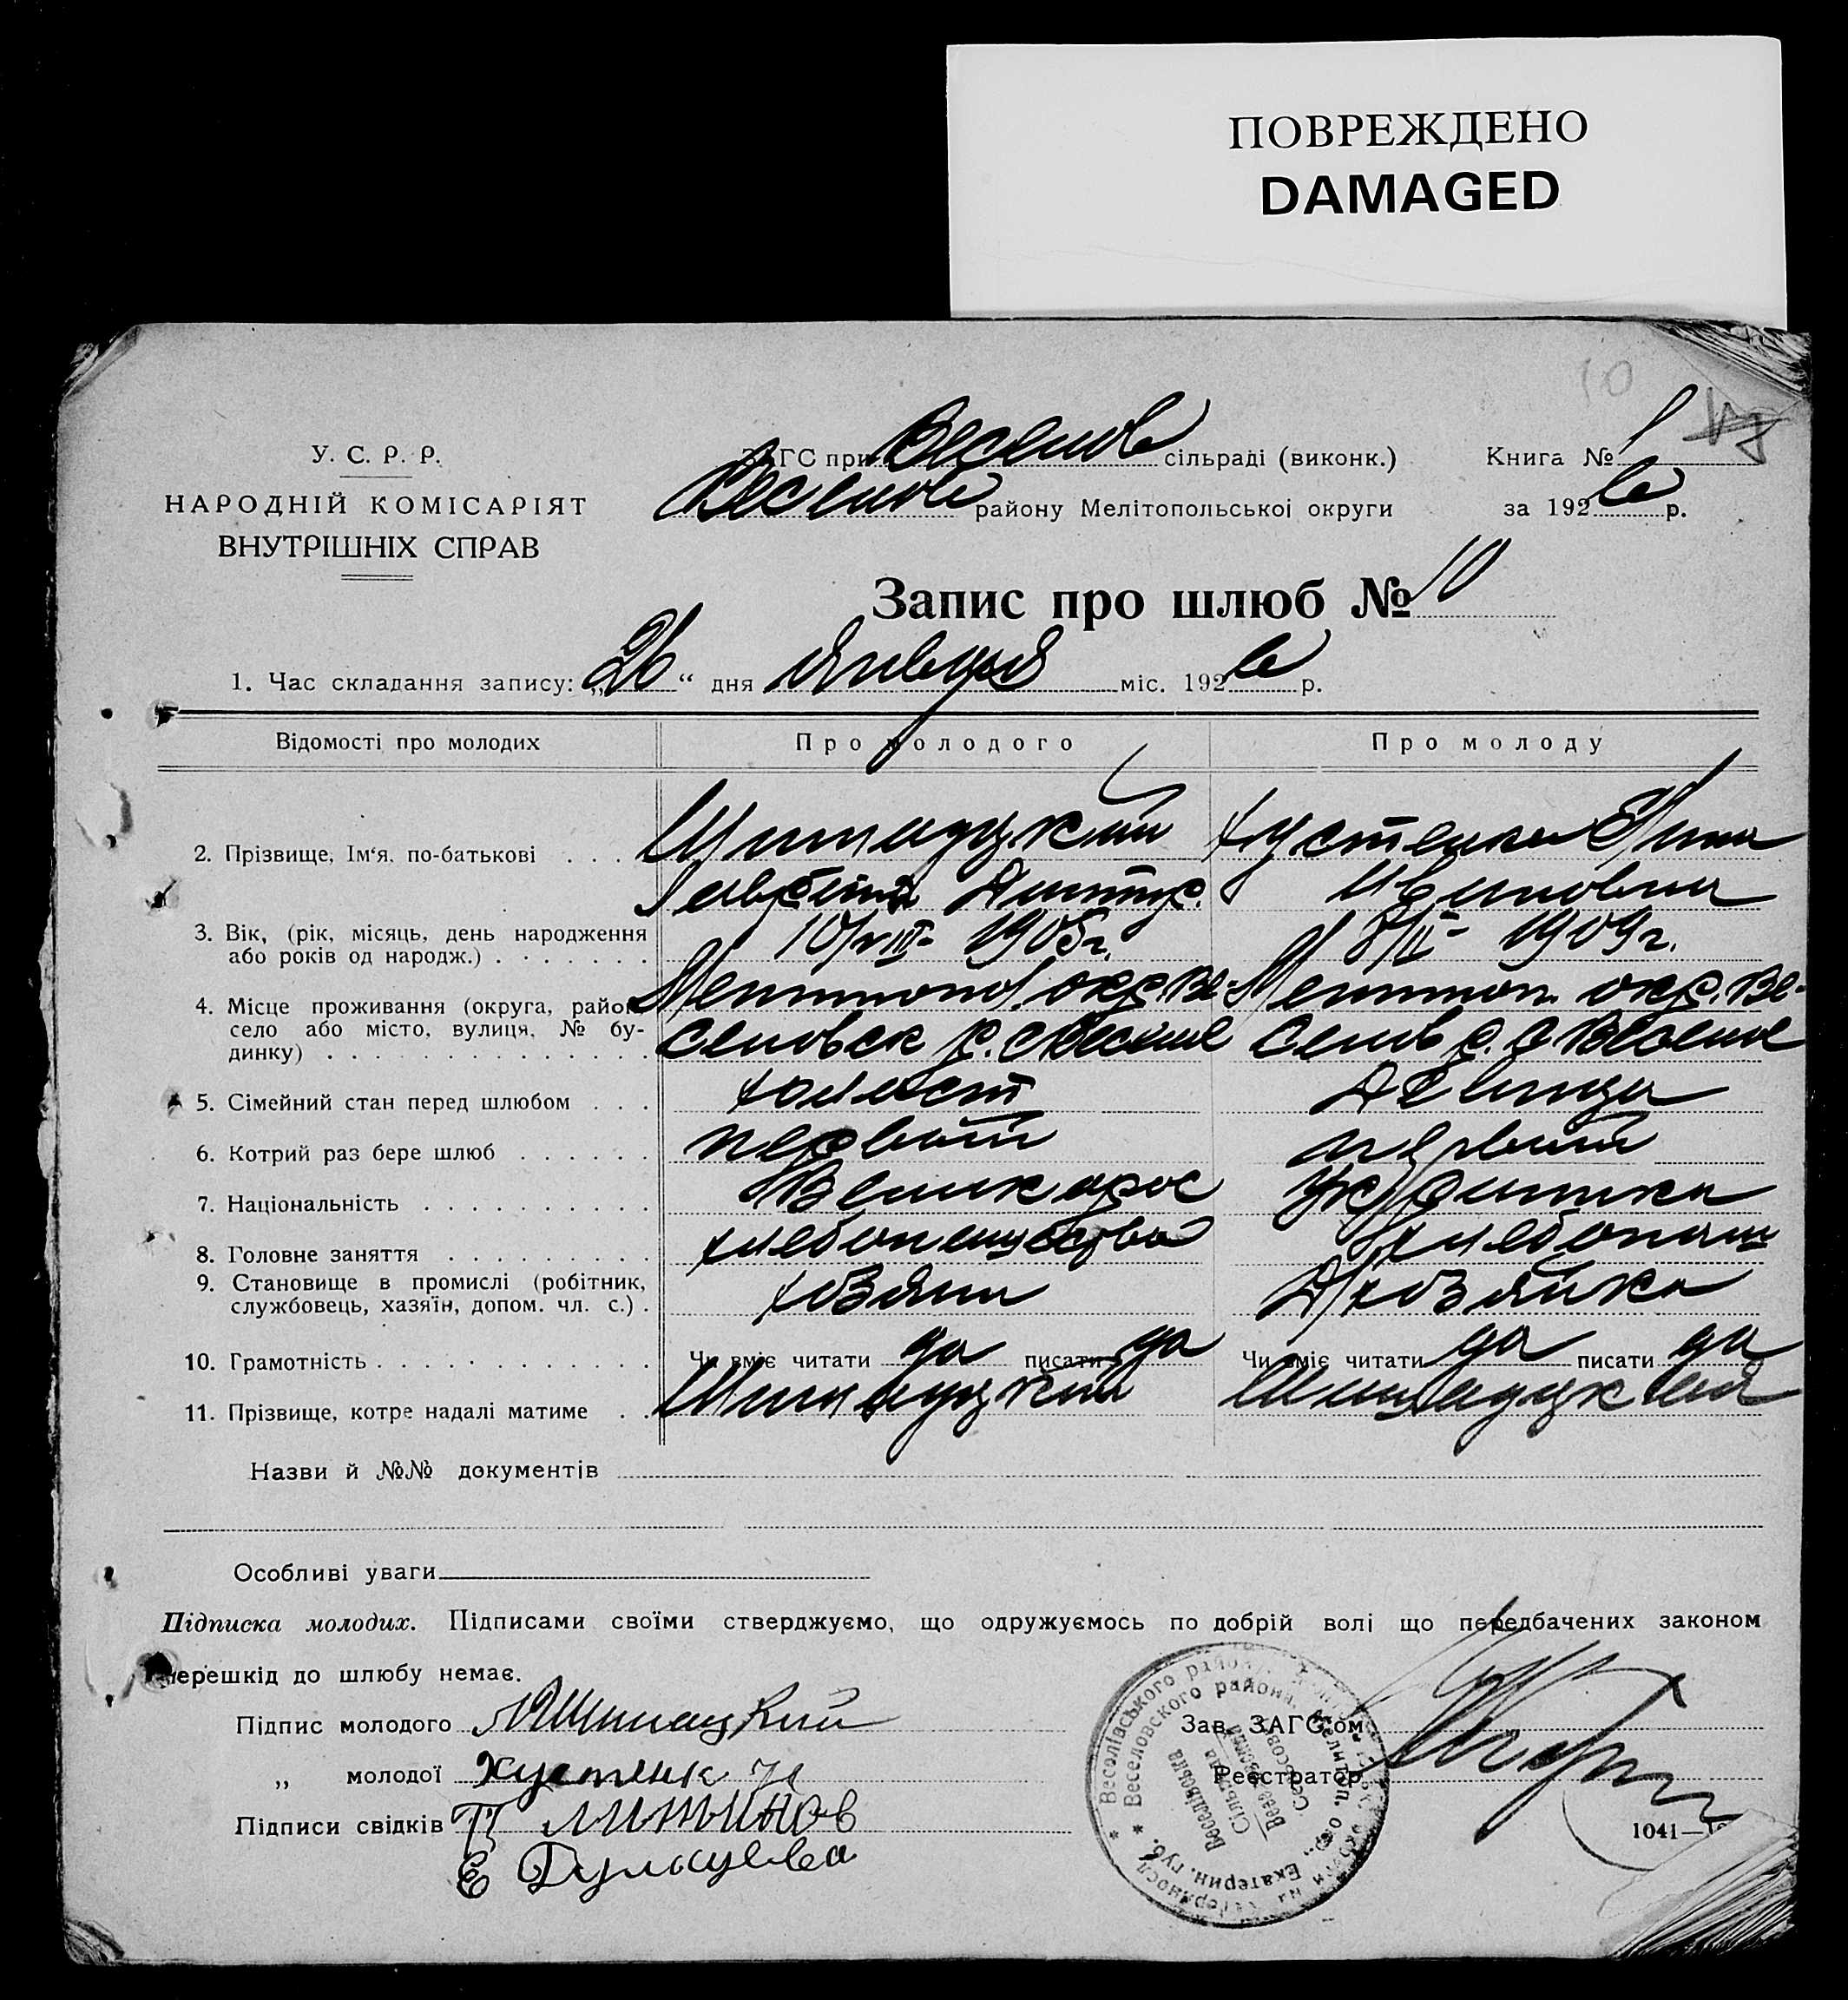 ПОВРЕЖДЕНО
DAMAGED
10
У. С. Р. Р.
НАРОДНІЙ КОМІСАРІЯТ
ВНУТРІШНІХ СПРАВ
ЗАГС при Веселов сільраді (виконк.)
Веселов району Мелітопольської округи
Книга № 1
за 1926 р.
Запис про шлюб № 10
1. Час складання запису: „26“ дня Января міс. 1926 р.
Відомості про молодих Про молодого Про молоду
2. Прізвище, Ім'я, по-батькові . . . Шипацкий Хустенко Анна
Дмитр. Ивановна
3. Вік, (рік, місяць, день народження
або років од народж.) . . . . . . . 10/VIII- 1905г. 8/II- 1909г.
4. Місце проживання (округа, район
село або місто, вулиця, № бу-
динку) . . . . . . . . . . . . . .
Мелитопол. окр. Ве- Мелитоп. окр. Ве-
селовск р. с Веселое селов р. с Веселое
5. Сімейний стан перед шлюбом . . . холост Девица
6. Котрий раз бере шлюб . . . . . . первый первый
7. Національність . . . . . . . . . . Великорос Украинка
8. Головне заняття . . . . . . . . . хлебопашество хлебопаш
9. Становище в промислі (робітник,
службовець, хазяїн, допом. чл. с.) . хозяин Д/хозяйка
10. Грамотність . . . . . . . . . . . . Чи вміє читати да писати да Чи вміє читати да писати да
11. Прізвище, котре надалі матиме . . Шипацкий Шипацкая
Назви й №№ документів
Особливі уваги
Підписка молодих. Підписами своїми стверджуємо, що одружуємось по добрій волі що передбачених законом
перешкід до шлюбу немає.
Підпис молодого Шипацкий
„ молодої Хустенк
Підписи свідків П Литвинов
Е
Зав. ЗАГС'ом
Реєстратор
1041—
Веселівського району
Веселовского района, Мелитоп. окр., Екатерин. губ.
Веселівська
Сільрада
Веселовский
Сельсовет